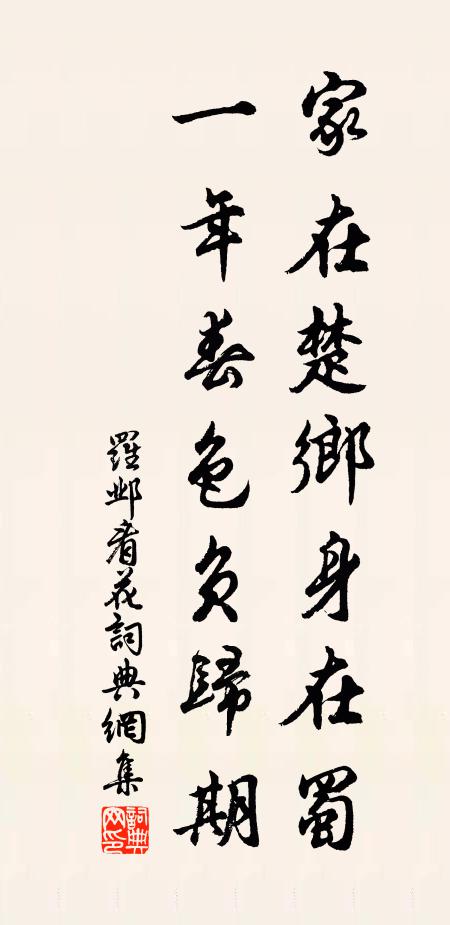 家在楚鄉身在蜀
一年春色負歸期
羅鄴看花詞典網集
詞典网印